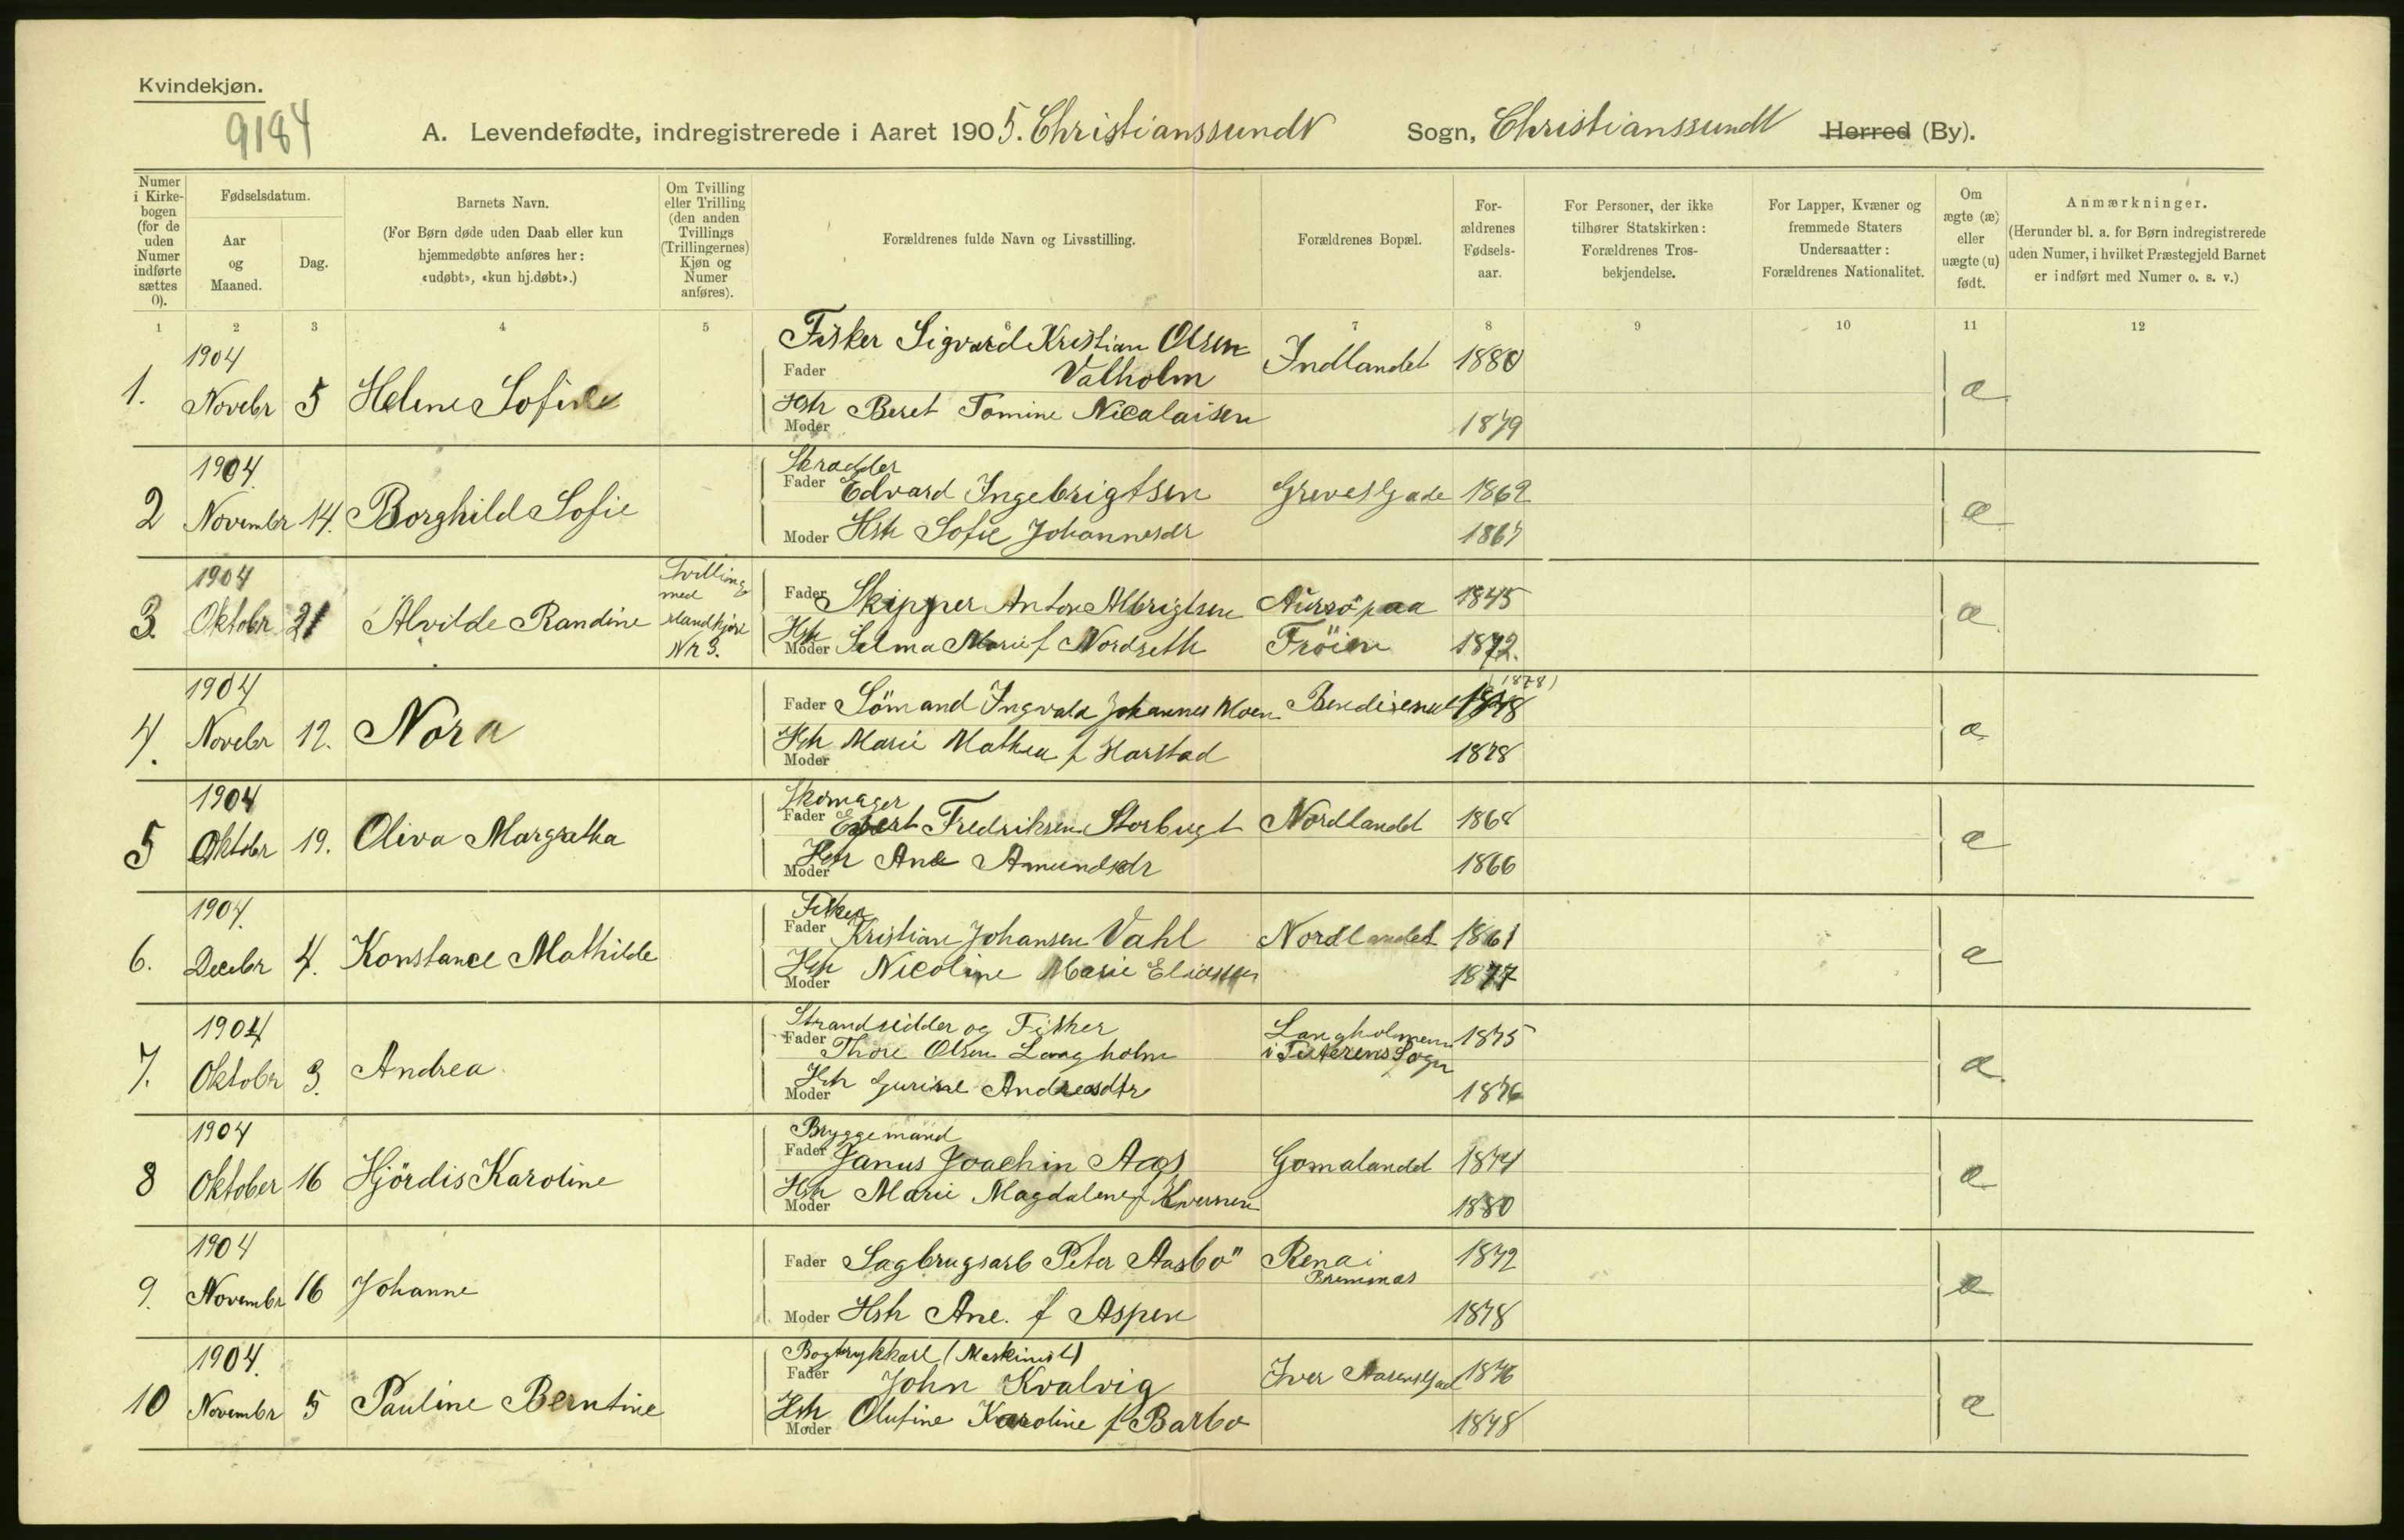 Kvindekjøn.
9184
A. Levendefødte, indregistrerede i Aaret 1905. Christianssunds Sogn, Christianssunds Herred (By).
Numer i Kirkebogen (for de uden Numer indførte sættes 0).
Fødselsdatum.
Aar og Maaned.
Dag.
Barnets Navn.
(For Børn døde uden Daab eller kun hjemmedøbte anføres her: «udøbt», «kun hj.døbt».)
Om Tvilling eller Trilling (den anden Tvillings (Trillingernes) Kjøn og Numer anføres).
Forældrenes fulde Navn og Livsstilling.
Forældrenes Bopæl.
Forældrenes Fødselsaar.
For Personer, der ikke tilhører Statskirken: Forældrenes Trosbekjendelse.
For Lapper, Kvæner og fremmede Staters Undersaatter: Forældrenes Nationalitet.
Om ægte (æ) eller uægte (u) født.
Anmærkninger.
(Herunder bl. a. for Børn indregistrerede uden Numer, i hvilket Præstegjeld Barnet er indført med Numer o. s. v.)
1 2 3 4 5 6 7 8 9 10 11 12
1904
1. Novebr 5 Helene Sofie
Fisker Sigvard Kristian Olsen Indlandet 1880
Fader Valholm
Hstr Beret Tomine Nicolaisen 1879
Moder
æ
1904.
2 Novembr 14. Borghild Sofie
Skradder
Fader Edvard Ingebrigtsen Greves Gade 1862
Moder Hstr Sofie Johannesdr 1867
æ
1904
3. Oktobr 21 Alvilde Randine
Tvilling med Mandkjøn Nr 3.
Fader Skipper Anton Albrigtsen Aursö paa 1845
Hstr Moder Selma Marie f Nordseth Fröien 1872.
æ
1904
4. Novebr 12. Nora
Fader Sömand Ingvald Johannes Moen (1878)
Hstr Marie Mathea f Harstad 1878
Moder
æ
1904
5 Oktobr 19. Oliva Margretha
Skomager
Fader Fredriksen Storbugt Nordlandet 1868
Hstr Ane Amundsdr 1866
Moder
æ
1904.
6. Decebr 4. Konstance Mathilde
Fisker
Fader Kristian Johansen Vahl Nordlandet 1861
Hstr Nicoline Marie Eliassen 1877
Moder
æ
1904
7. Oktobr 3. Andrea
Strandsidder og Fisker Langholmen 1875
Fader Thore Olsen Langholm i Sogn
Hstr Gurine Andreasdtr 1876
Moder
æ
1904
8 Oktober 16 Hjördis Karoline
Bryggemand
Fader Janus Joachin Aas Gomalandet 1874
Hstr Marie Magdalene f Kvernen 1880
Moder
æ
1904
9. Novembr 16 Johanne
Fader Sagbrugsarb Peter Aasbö Rena i 1872
Bremnæs
Moder Hstr Ane. f Aspen 1878
æ
1904.
10 Novembr 5 Pauline Berntine
Bogtrykkarl (Maskinist)
Fader John Kvalvig Iver Aasens Gad 1876
Hstr Olufine Karoline f Barbo 1878
Moder
æ